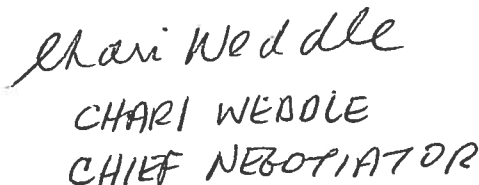 Chari Weddle
CHARI WEDDLE
CHIEF NEGOTIATOR